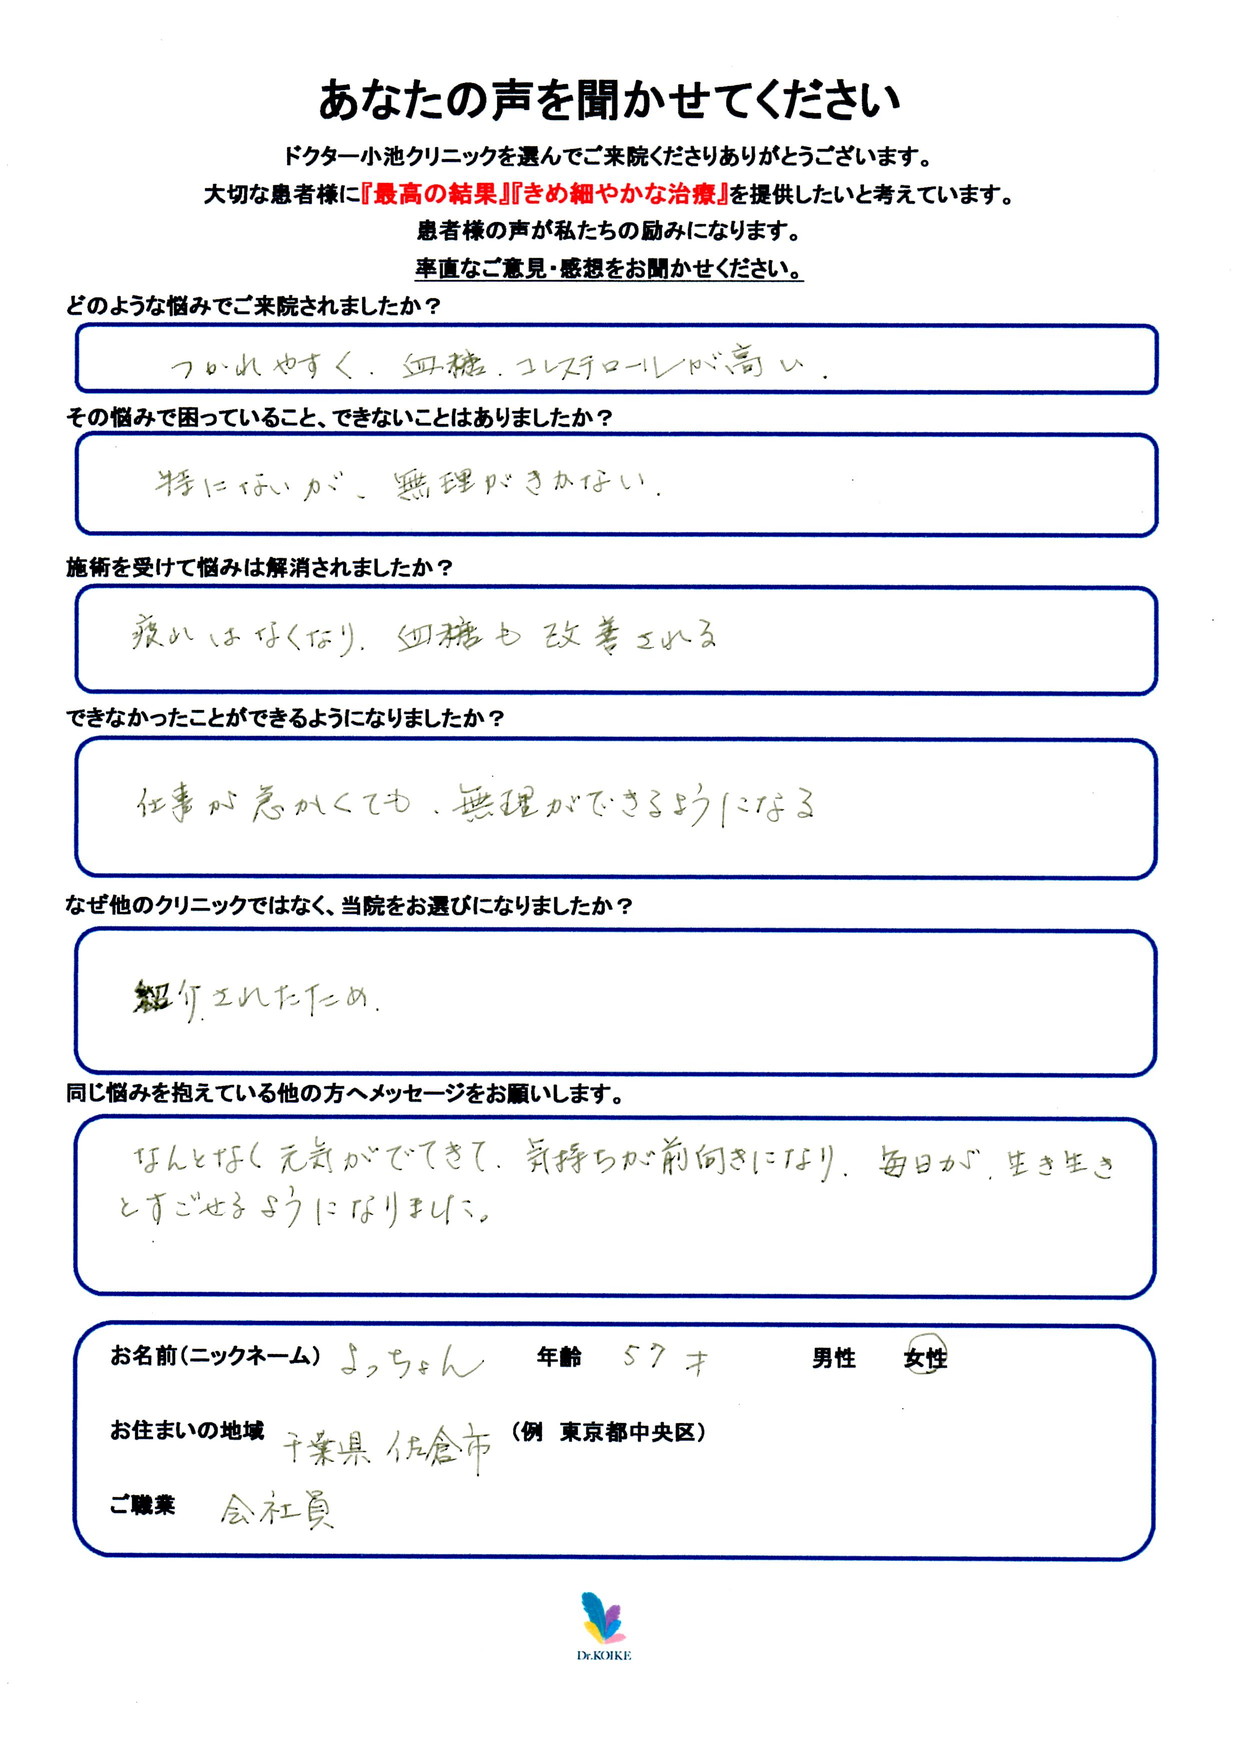 あなたの声を聞かせてください
ドクター小池クリニックを選んでご来院くださりありがとうございます。
大切な患者様に『最高の結果』『きめ細やかな治療』を提供したいと考えています。
患者様の声が私たちの励みになります。
率直なご意見・感想をお聞かせください。
どのような悩みでご来院されましたか？
つかれやすく. 血糖. コレステロールが高い.
その悩みで困っていること、できないことはありましたか？
特にないが、無理がきかない.
施術を受けて悩みは解消されましたか？
疲れはなくなり. 血糖も改善される
できなかったことができるようになりましたか？
仕事が急がしくても、無理ができるようになる
なぜ他のクリニックではなく、当院をお選びになりましたか？
紹介されたため.
同じ悩みを抱えている他の方へメッセージをお願いします。
なんとなく元気がでてきて. 気持ちが前向きになり. 毎日が. 生き生き
とすごせるようになりました。
お名前（ニックネーム） よっちょん 年齢 57才 男性 女性
お住まいの地域 千葉県佐倉市 （例 東京都中央区）
ご職業 会社員
Dr.KOIKE